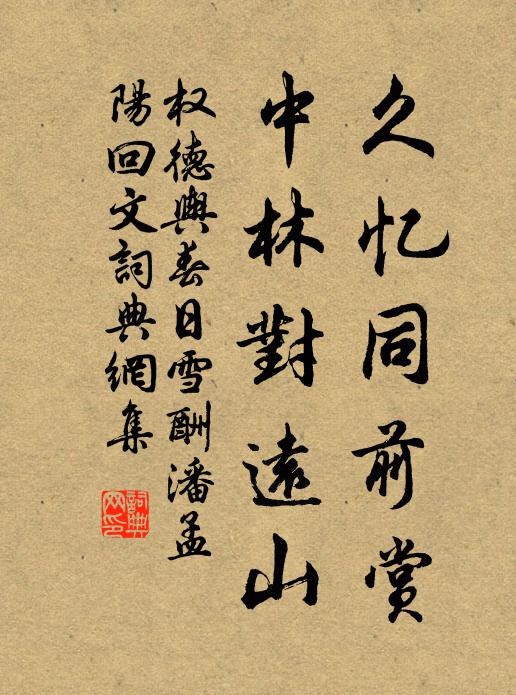 久忆同前赏
中林對遠山
权德輿春日雪酬潘孟
陽回文詞典網集
詞典網印